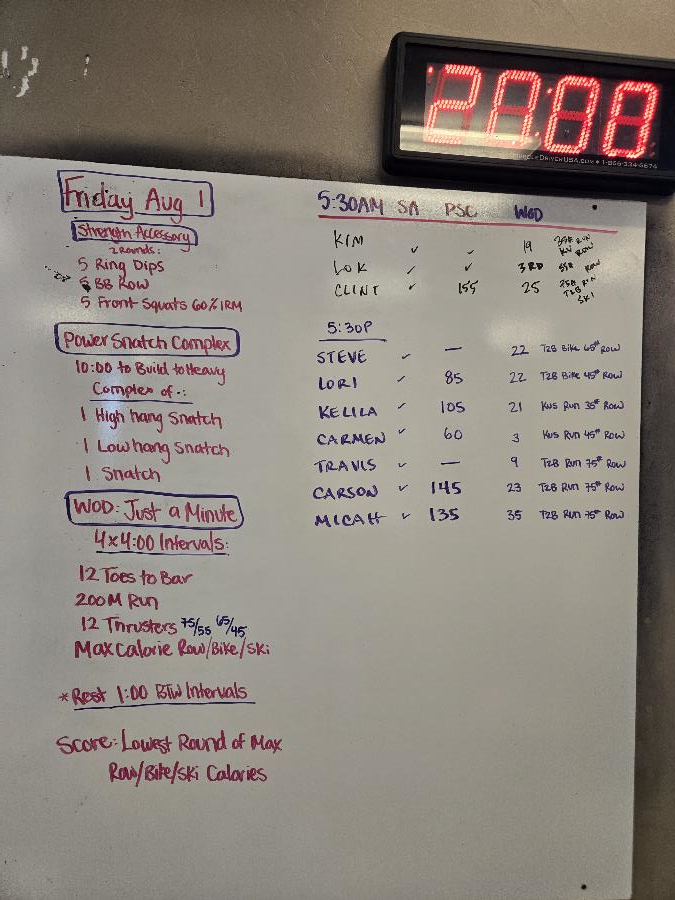 20:00
MUSCLEDRIVERUSA.COM • 1-866-334-5674
Friday Aug 1
Strength Accessory
2 Rounds:
5 Ring Dips
5 BB Row
5 Front Squats 60% 1RM
Power Snatch Complex
10:00 to Build to Heavy
Complex of -:
1 High hang Snatch
1 Low hang Snatch
1 Snatch
WOD: Just a Minute
4x4:00 Intervals:
12 Toes to Bar
200M Run
12 Thrusters 75/55 65/45
Max Calorie Row/Bike/Ski
*Rest 1:00 BTW Intervals
Score: Lowest Round of Max
Row/Bike/Ski Calories
5:30AM SA PSC WOD
KIM ✓ ✓ 19 35# RUN
ROW
LOK ✓ ✓ 3RD 55# ROW
CLINT ✓ 155 25 75# RUN
T2B
SKI
5:30P
STEVE ✓ — 22 T2B Bike 65# ROW
LORI ✓ 85 22 T2B Bike 45# ROW
KELILA ✓ 105 21 KUS Run 35# ROW
CARMEN ✓ 60 3 KUS Run 45# ROW
TRAVIS ✓ — 9 T2B Run 75# ROW
CARSON ✓ 145 23 T2B Run 75# ROW
MICAH ✓ 135 35 T2B Run 75# ROW